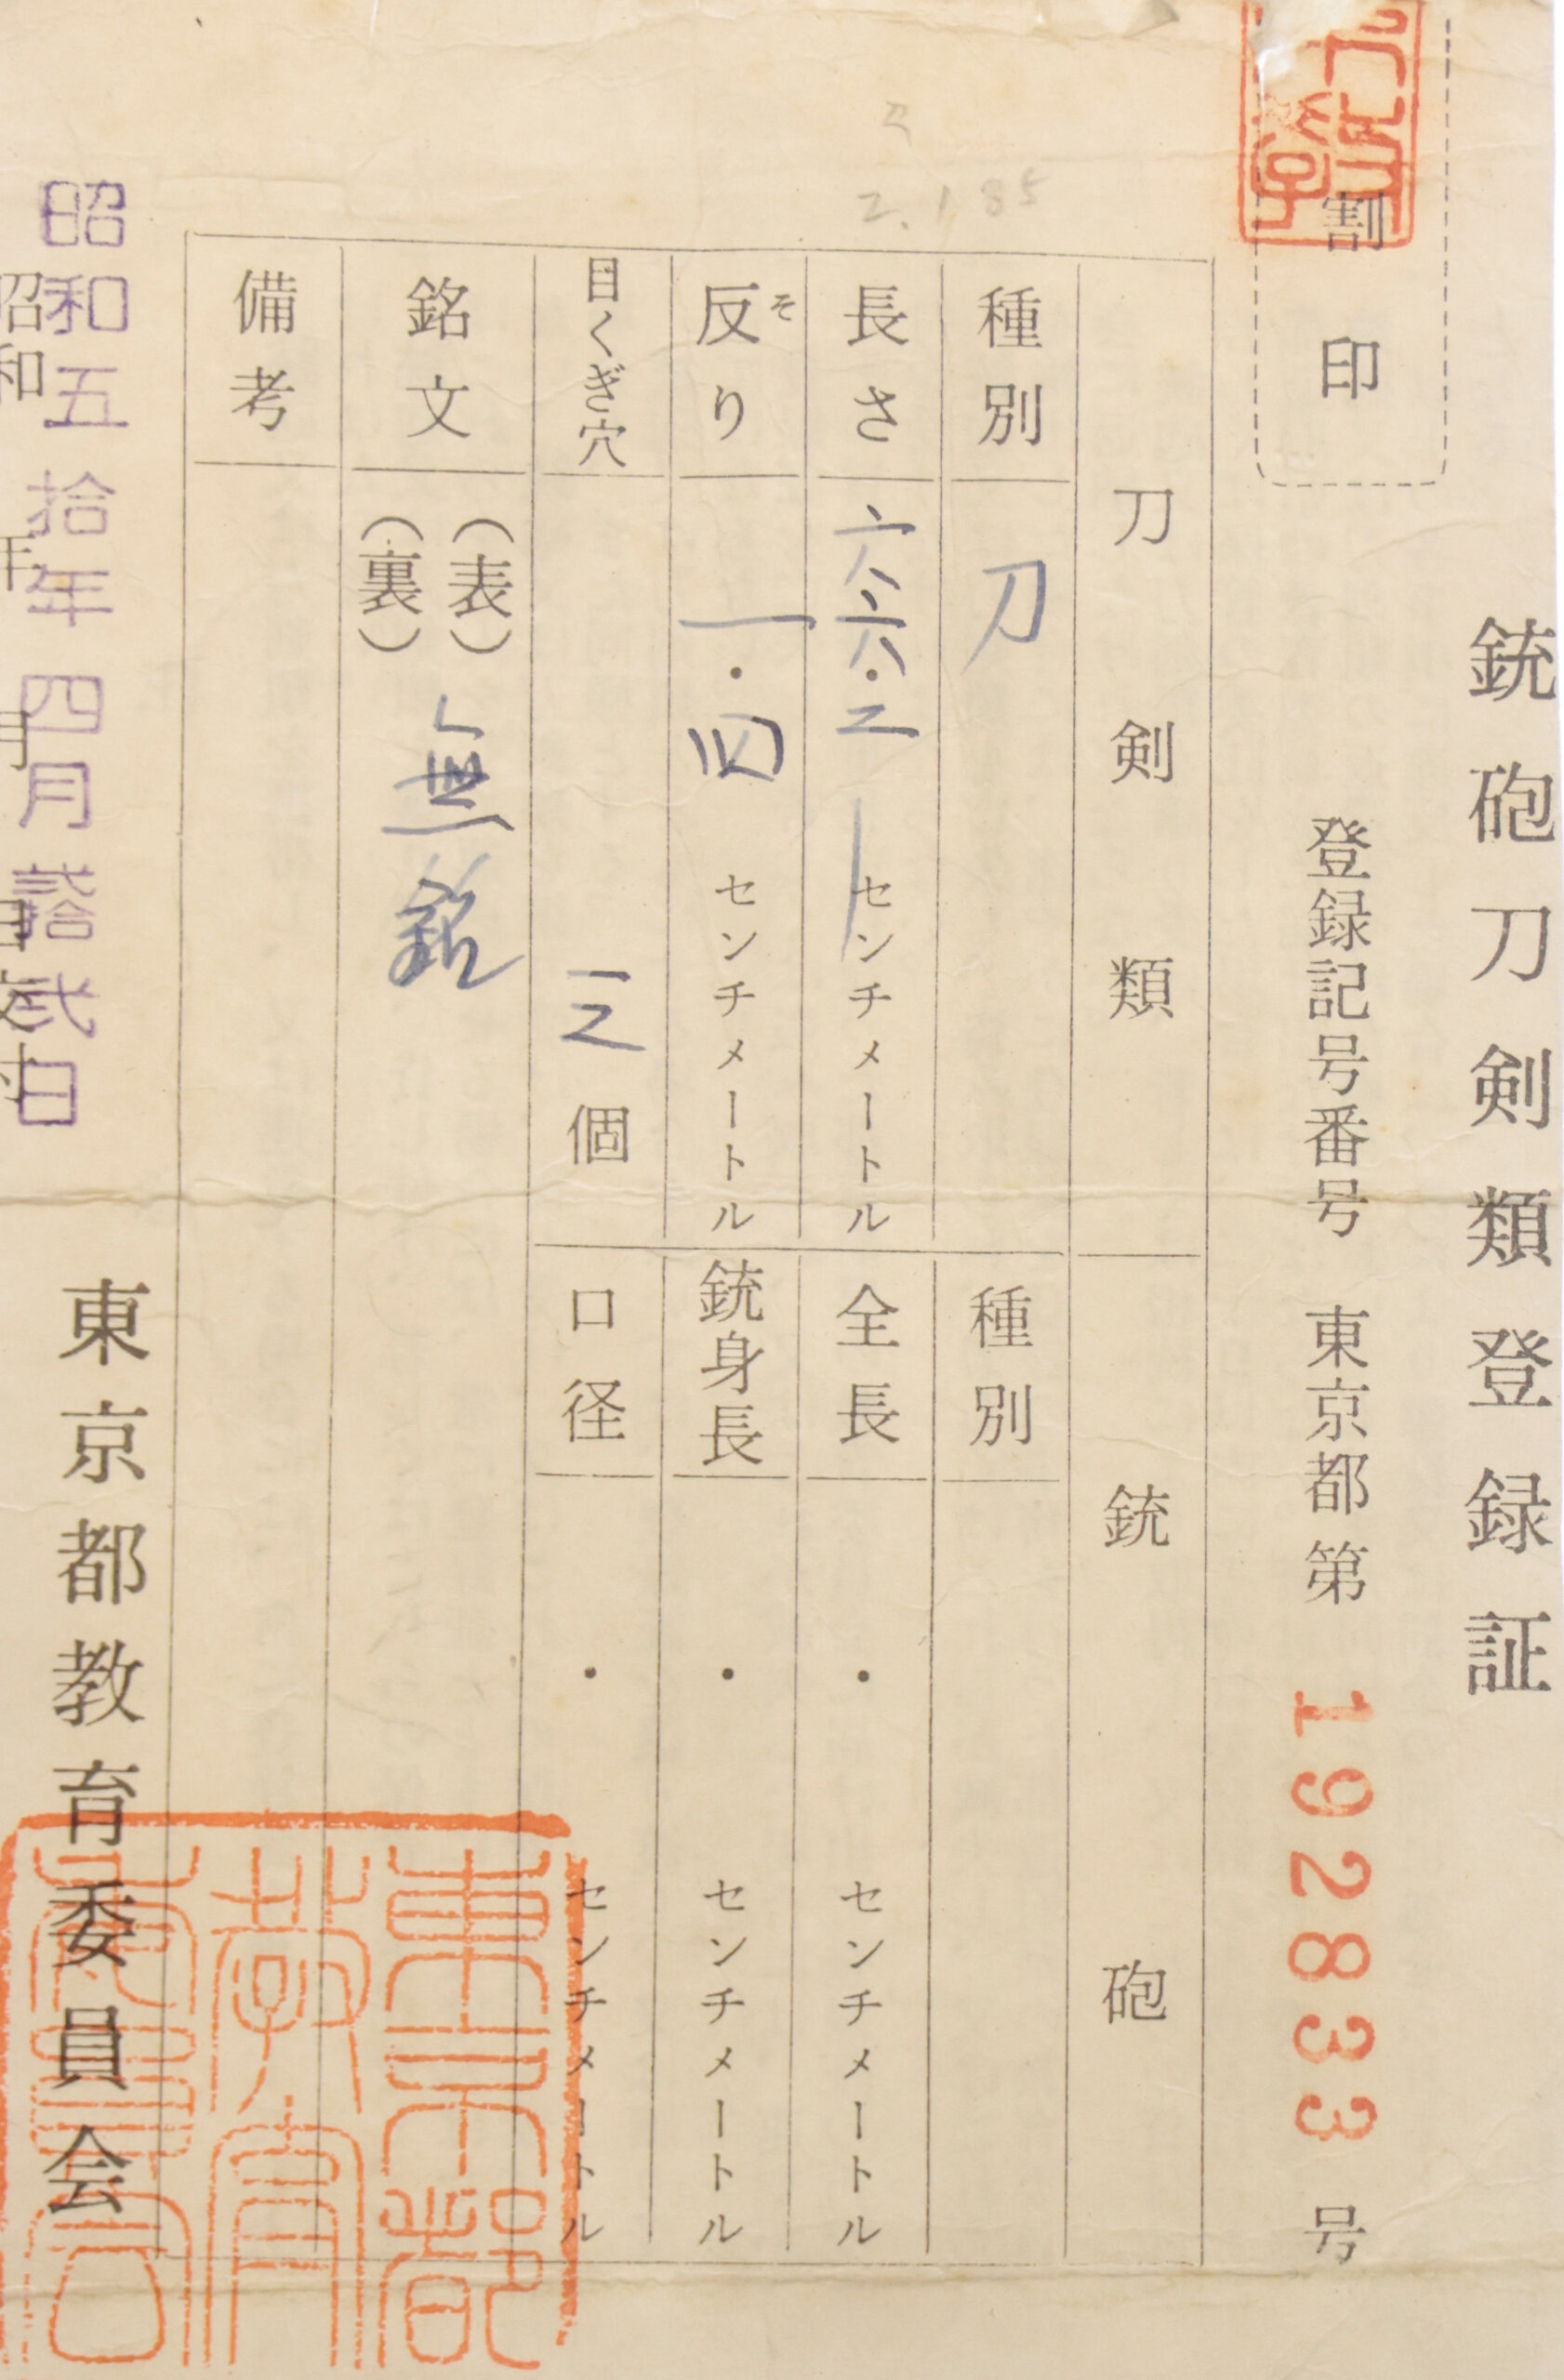 銃砲刀剣類登録証
割印
登録記号番号 東京都第 192833 号
刀剣類
銃砲
種別 刀
種別
長さ 六六・二 センチメートル
全長 ・ センチメートル
反り そ 一・四 センチメートル
銃身長 ・ センチメートル
目くぎ穴 三個
口径 ・ センチメートル
銘文 (表) (裏) 無銘
備考
昭和五拾年四月弐拾弐日
昭和 年 月 日交付
東京都教育委員会
2.185